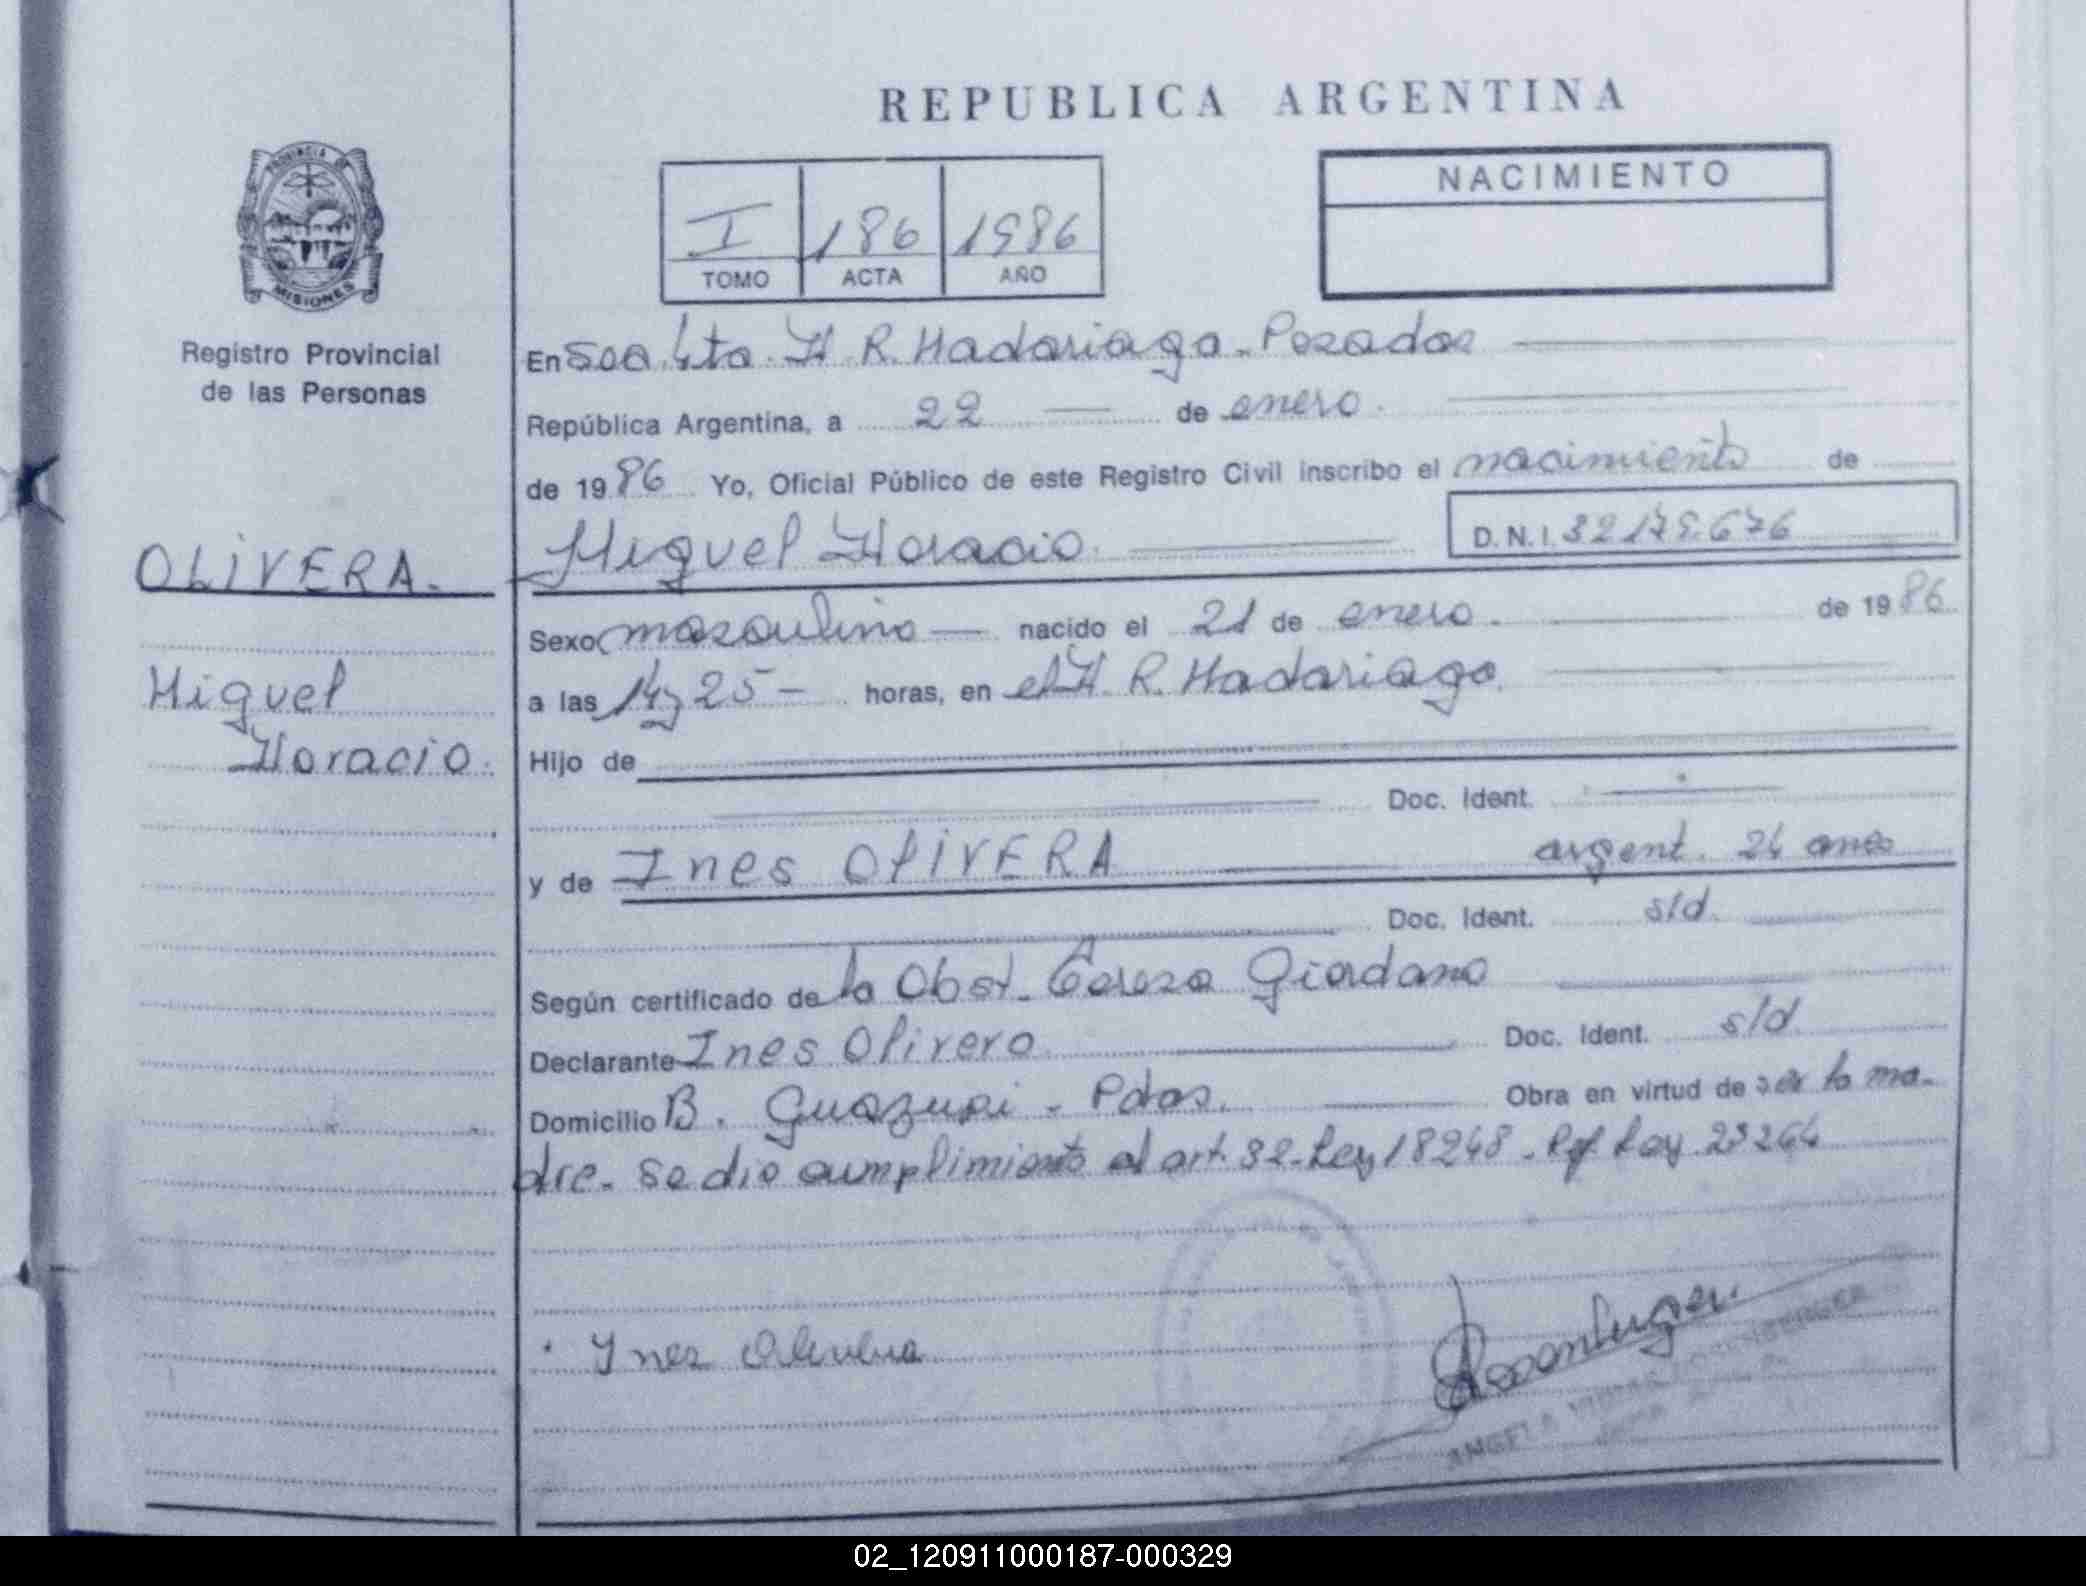 REPUBLICA ARGENTINA
PROVINCIA DE
MISIONES
Registro Provincial
de las Personas
I 186 1986
TOMO ACTA AÑO
NACIMIENTO
En Sec. 4ta. H. R. Madariaga - Posadas
República Argentina, a 22 de enero
de 1986 Yo, Oficial Público de este Registro Civil inscribo el nacimiento de
OLIVERA.
Miguel Horacio.
D.N.I. 32.175.676
Miguel
Horacio.
Sexo masculino nacido el 21 de enero. de 1986
a las 14 y 25 horas, en el H. R. Madariaga
Hijo de
Doc. Ident.
y de Ines OLIVERA argent. 24 anos
Doc. Ident. s/d.
Según certificado de la Obst. Teresa Giordano
Declarante Ines Olivera Doc. Ident. s/d
Domicilio B. Guazupi - Pdas. Obra en virtud de ser la ma-
dre. Se dio cumplimiento al art. 32 - Ley 18248 - Ley 23264
Ynes Olivera
ANGELA
02_120911000187-000329